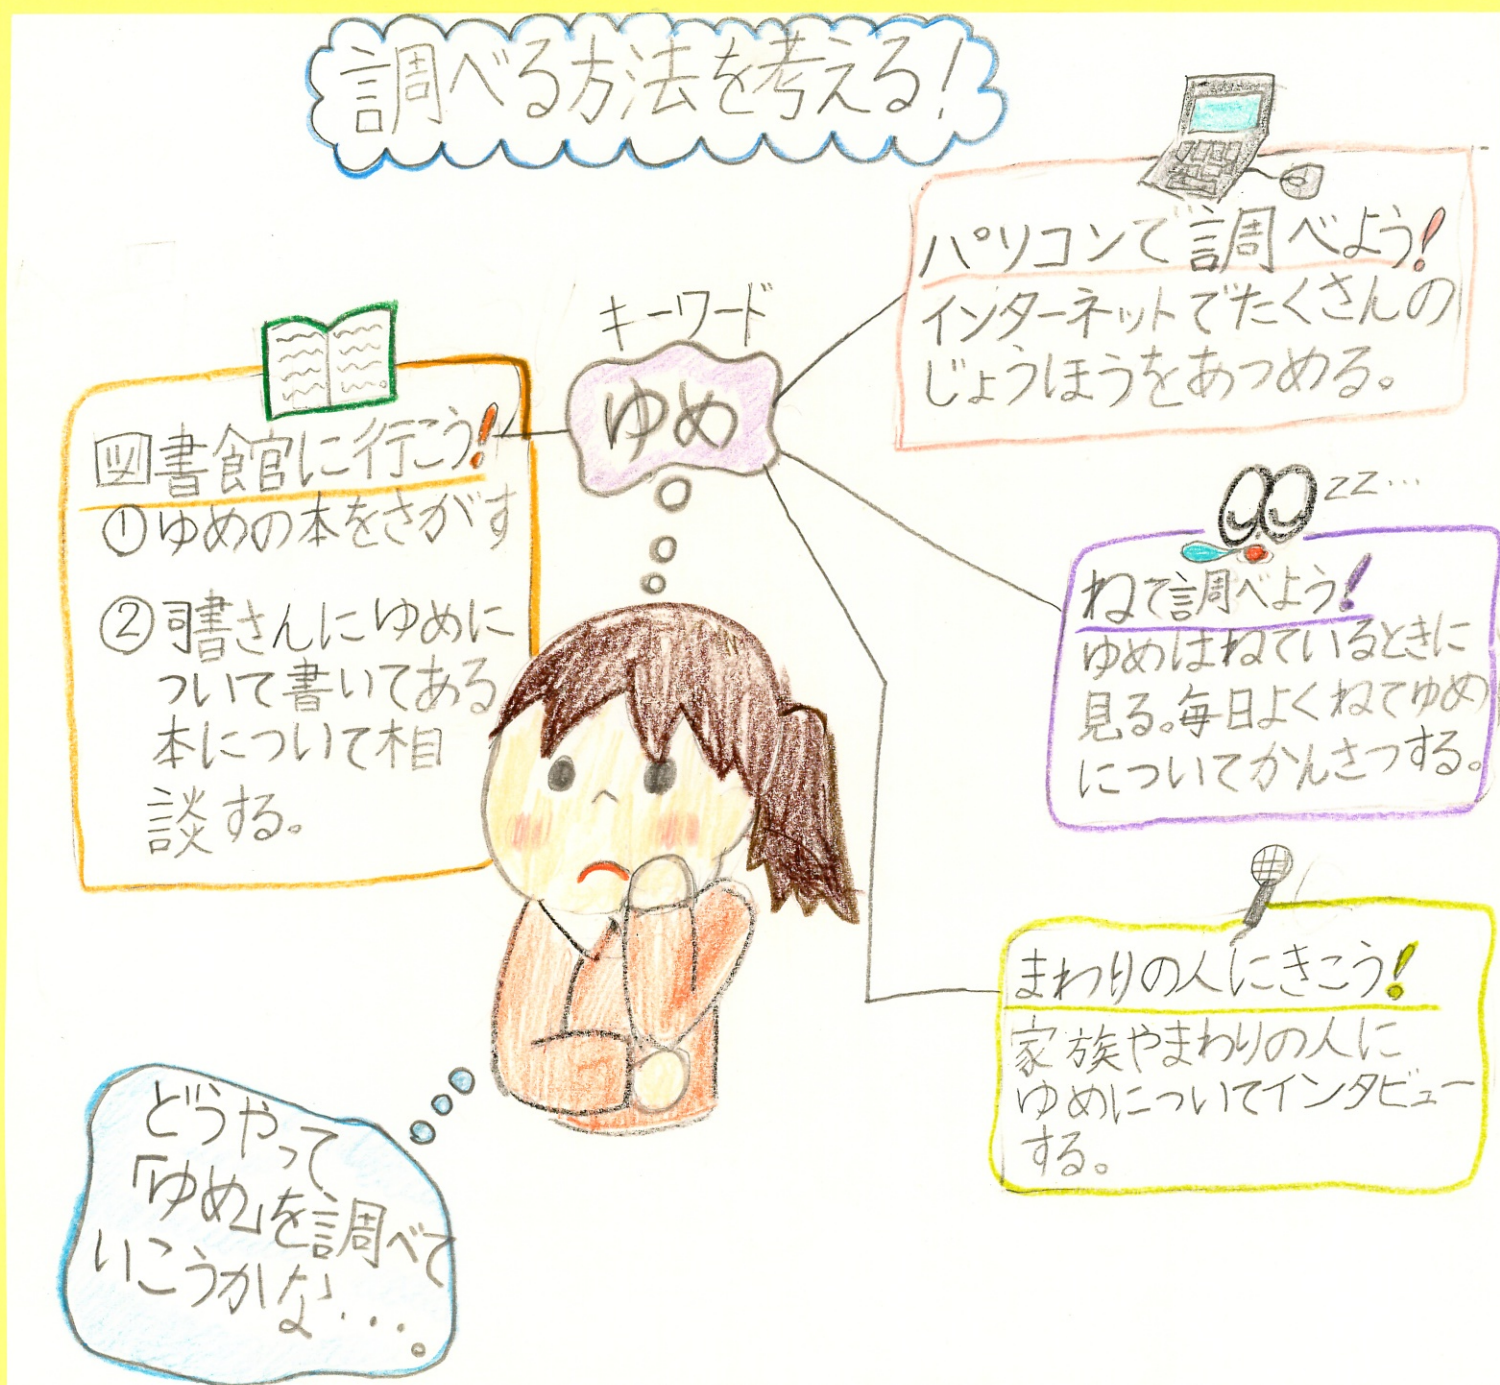 調べる方法を考える！
キーワード
ゆめ
図書館に行こう！
①ゆめの本をさがす
②司書さんにゆめに
ついて書いてある
本について相
談する。
パソコンで調べよう！
インターネットでたくさんの
じょうほうをあつめる。
zz…
ねて調べよう！
ゆめはねているときに
見る。毎日よくねてゆめ
についてかんさつする。
まわりの人にきこう！
家族やまわりの人に
ゆめについてインタビュー
する。
どうやって
「ゆめ」を調べて
いこうかな・・・。